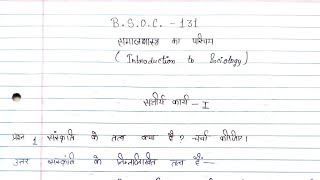 B.S.O.C. - 131
समाजशास्त्र का परिचय
( Introduction to Sociology )
सत्रीय कार्य - I
प्रश्न 1 संस्कृति के तत्व क्या है ? चर्चा कीजिए।
उत्तर संस्कृति के निम्नलिखित तत्व हैं—